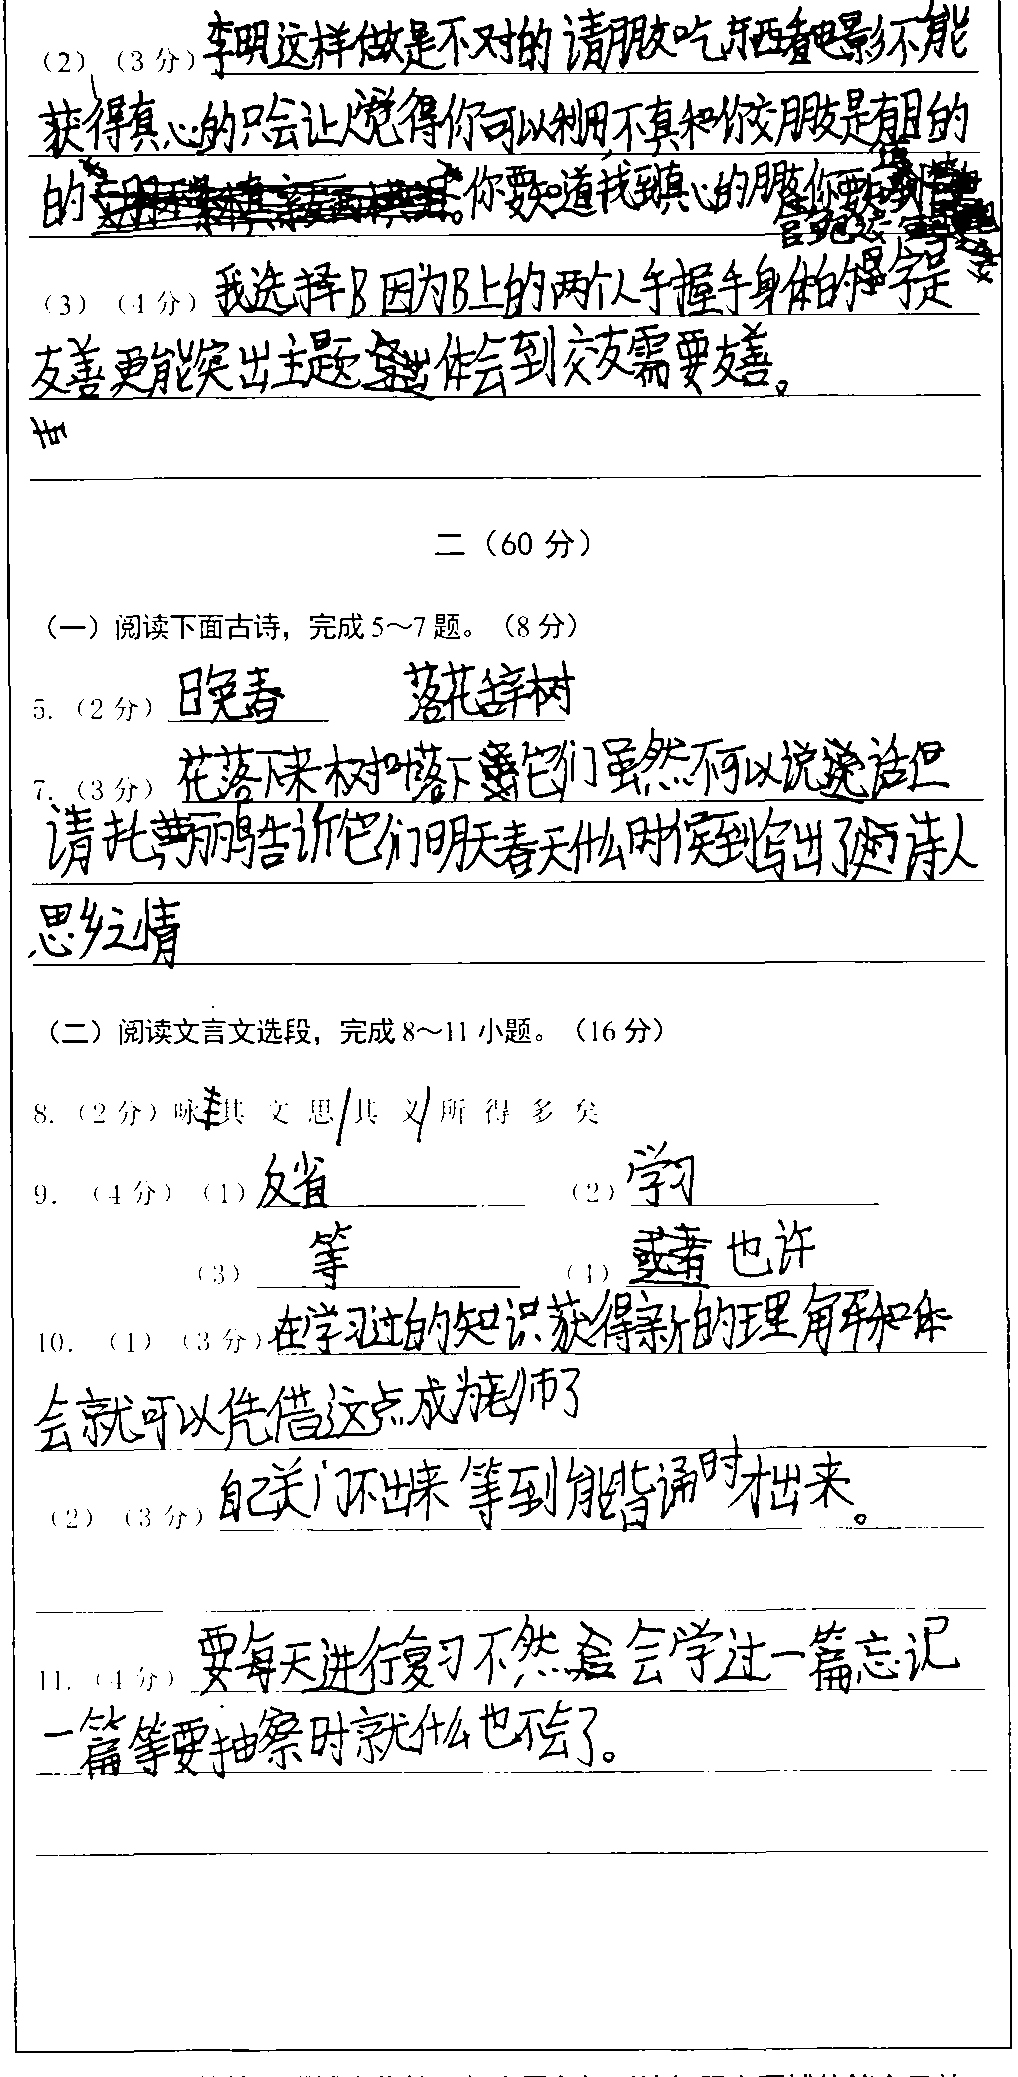 (2)（3分）李明这样做是不对的 请朋友吃东西看电影不能
获得真心的只会让人觉得你可以利用,不真和你交朋友是有目的
的 。你要知道找到真心的朋友你要
（3）（4分）我选择B因为B上的两个人手握手身体的 字是
友善更能突出主题 体会到交友需要友善。
二（60 分）
（一）阅读下面古诗，完成5～7题。（8分）
5.（2分）日晚春 落花辞树
7.（3分）花落下来树叶落下 它们虽然不可以说 话但
请托 鹂鸣告诉它们明天春天什么时候到写出了 诗人
思乡之情
（二）阅读文言文选段，完成8～11小题。（16分）
8.（2分）咏 其 文 思/其 义/所 得 多 矣
9.（4分）（1）反省 （2）学习
（3） 等 （4）或者 也许
10.（1）（3分）在学习过的知识获得新的理解和体
会就可以凭借这点成为老师了
（2）（3分）自己关门不出来 等到能背诵时才出来。
11.（4分）要每天进行复习不然 会学过一篇忘记
一篇等要抽察时就什么也不会了。